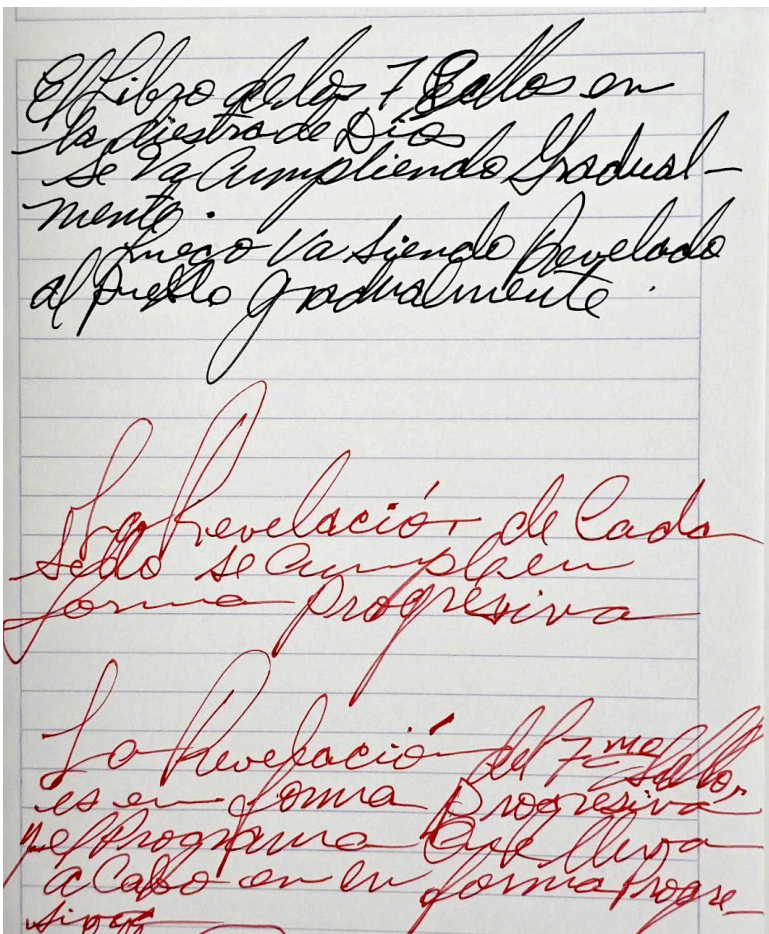 El Libro de los 7 Sellos en
la diestra de Dios
se va Cumpliendo Gradual-
mente.
Luego va siendo Revelado
al pueblo gradualmente.
La Revelación de Cada
Sello se Cumple en
forma progresiva
La Revelación del 7mo Sello,
es en forma Progresiva
y el Programa Que lleva
a Cabo en forma Progre-
siva